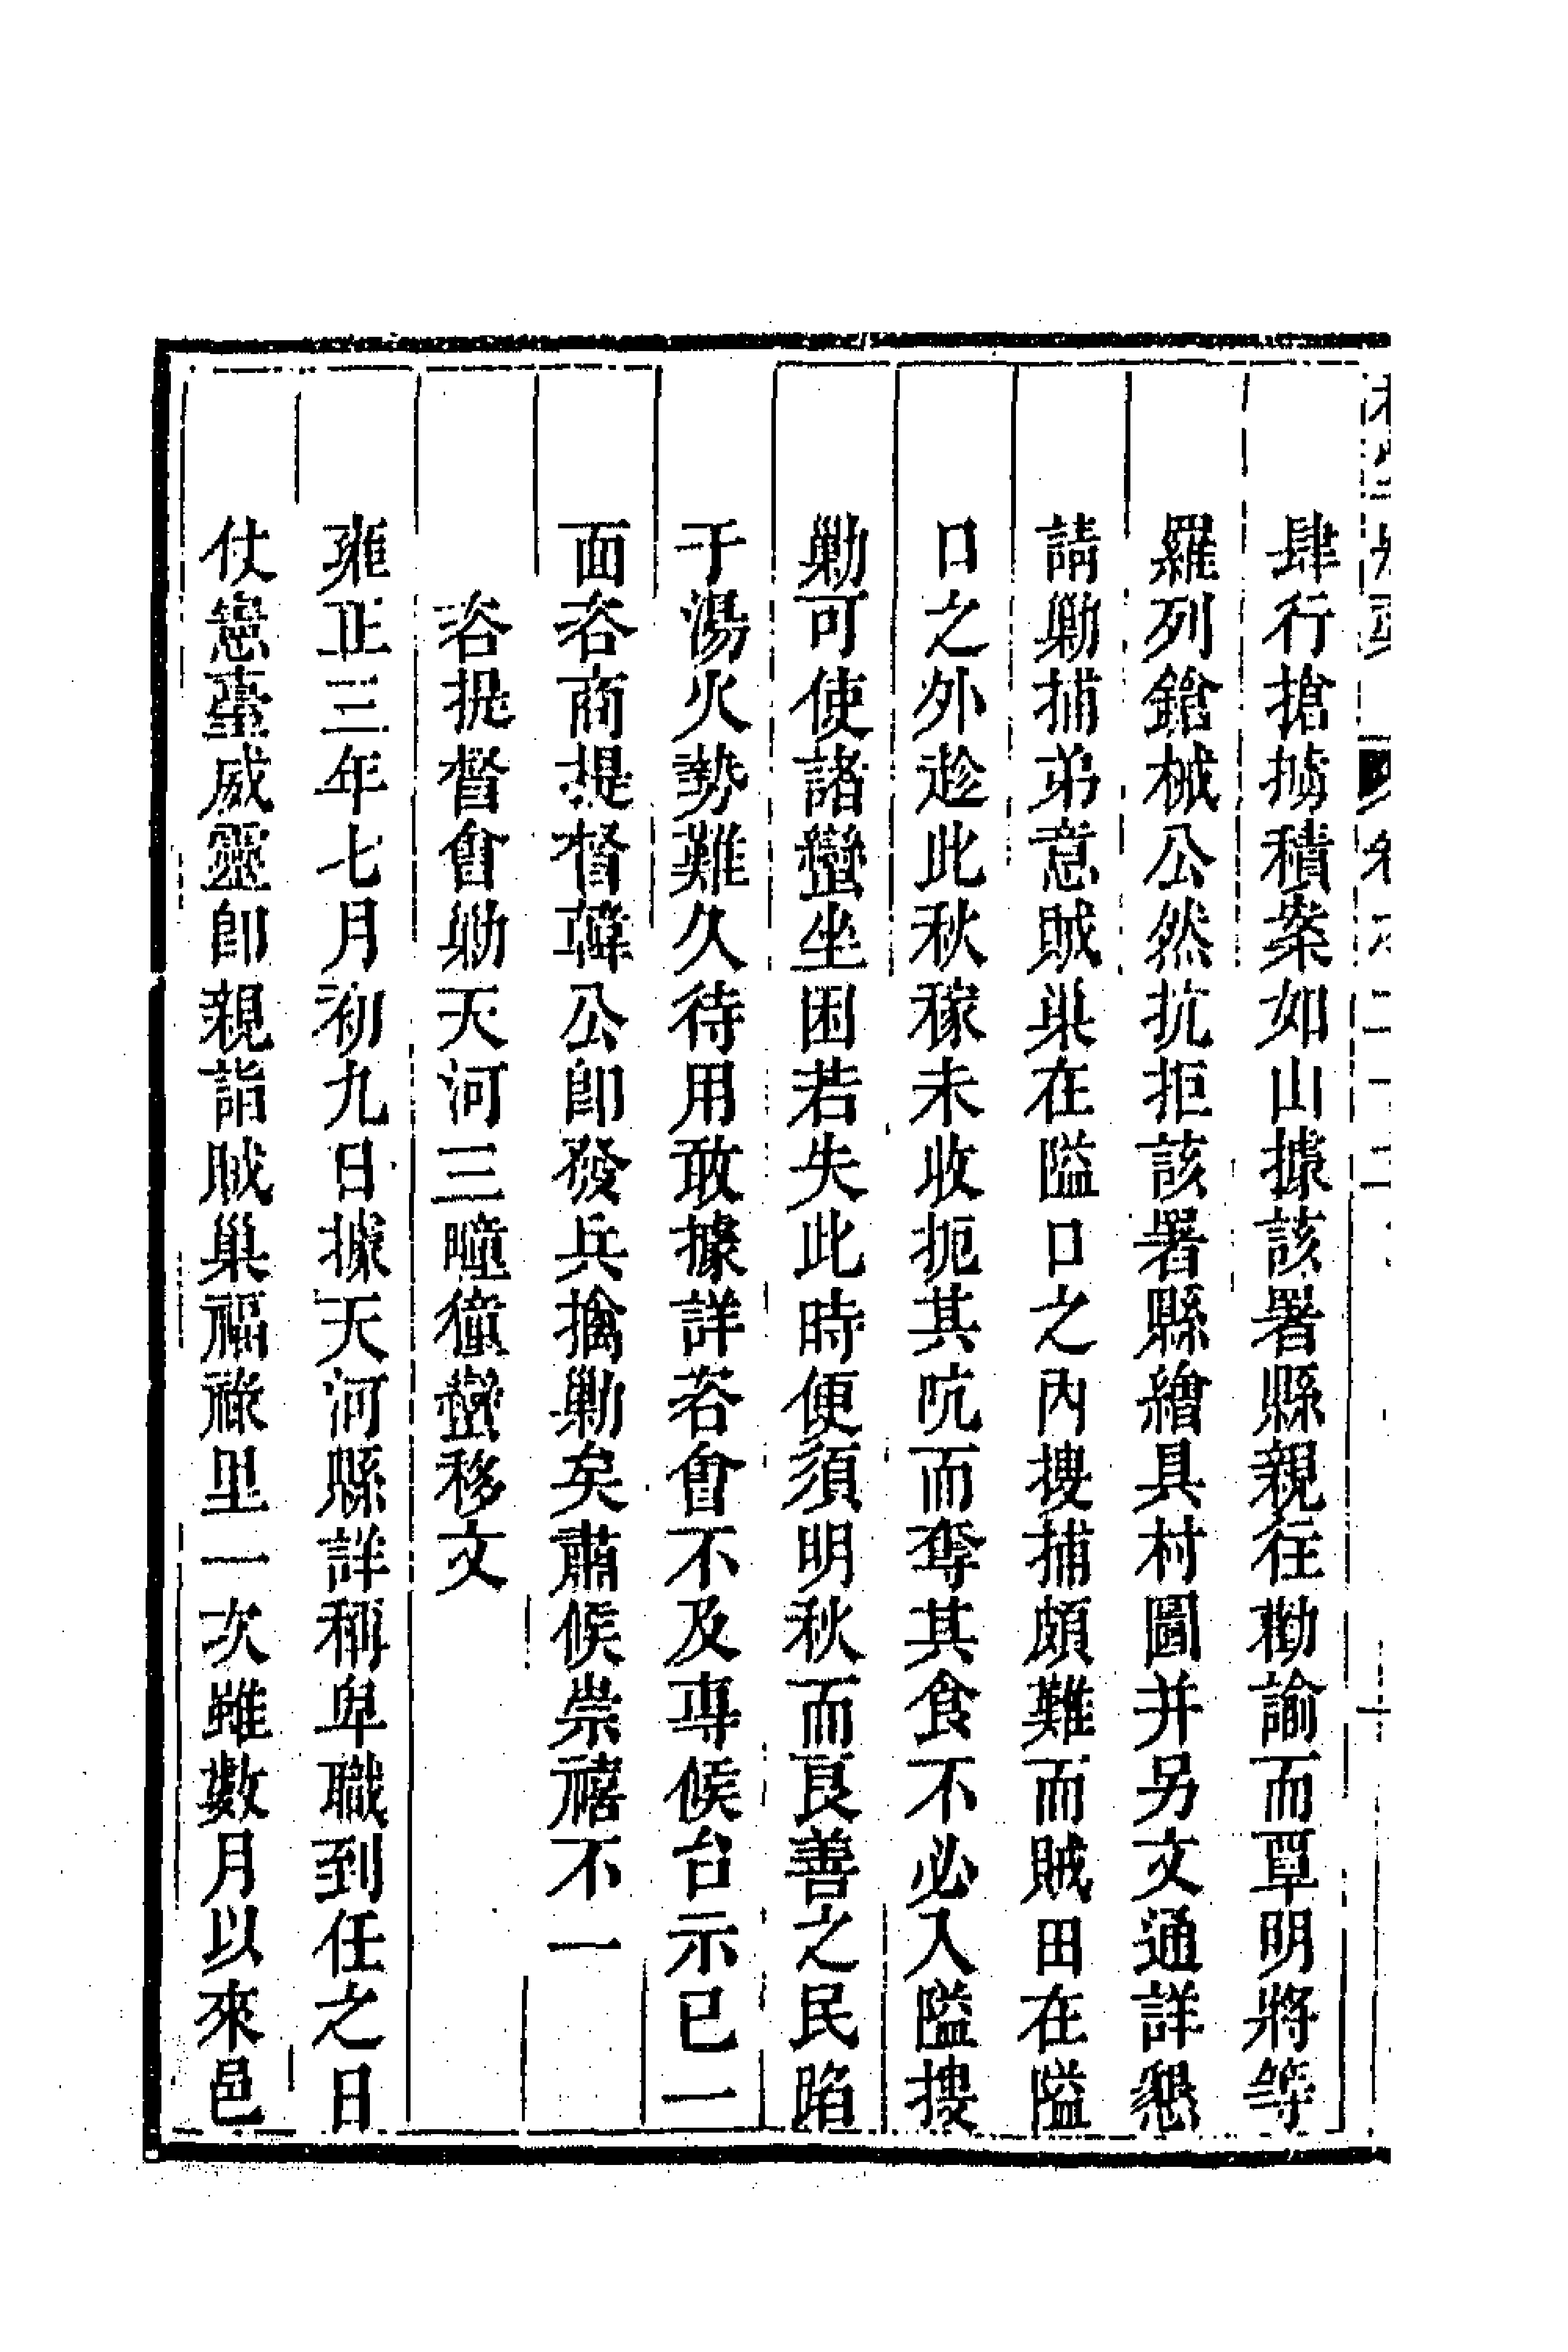 肆行搶擄積案如山據該署縣親往勸諭而覃明將等
羅列鎗械公然抗拒該署縣繪具村圖并另文通詳懇
請勦捕弟意賊巢在隘口之內搜捕頗難而賊田在隘
口之外趁此秋稼未收扼其吭而奪其食不必入隘搜
勦可使諸蠻坐困若失此時便須明秋而良善之民陷
于湯火勢難久待用敢據詳咨會不及專候台示已一
面咨商提督韓公卽發兵擒勦矣肅候崇禧不一
咨提督會勦天河三疃獞蠻移文
雍正三年七月初九日據天河縣詳稱卑職到任之日
仗憲臺威靈卽親詣賊巢福祿里一次雖數月以來邑